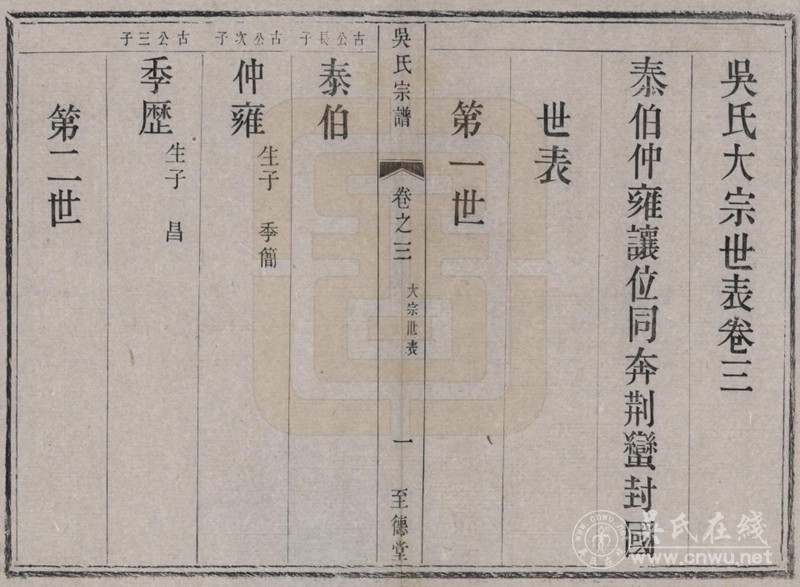 吳氏大宗世表卷三
泰伯仲雍讓位同奔荆蠻封國
世表
第一世
吳氏宗譜
卷之三
大宗世表
一
至德堂
古公長子
泰伯
古公次子
仲雍
生子 季簡
古公三子
季歷
生子 昌
第二世
吴氏在线
www.cnwu.net